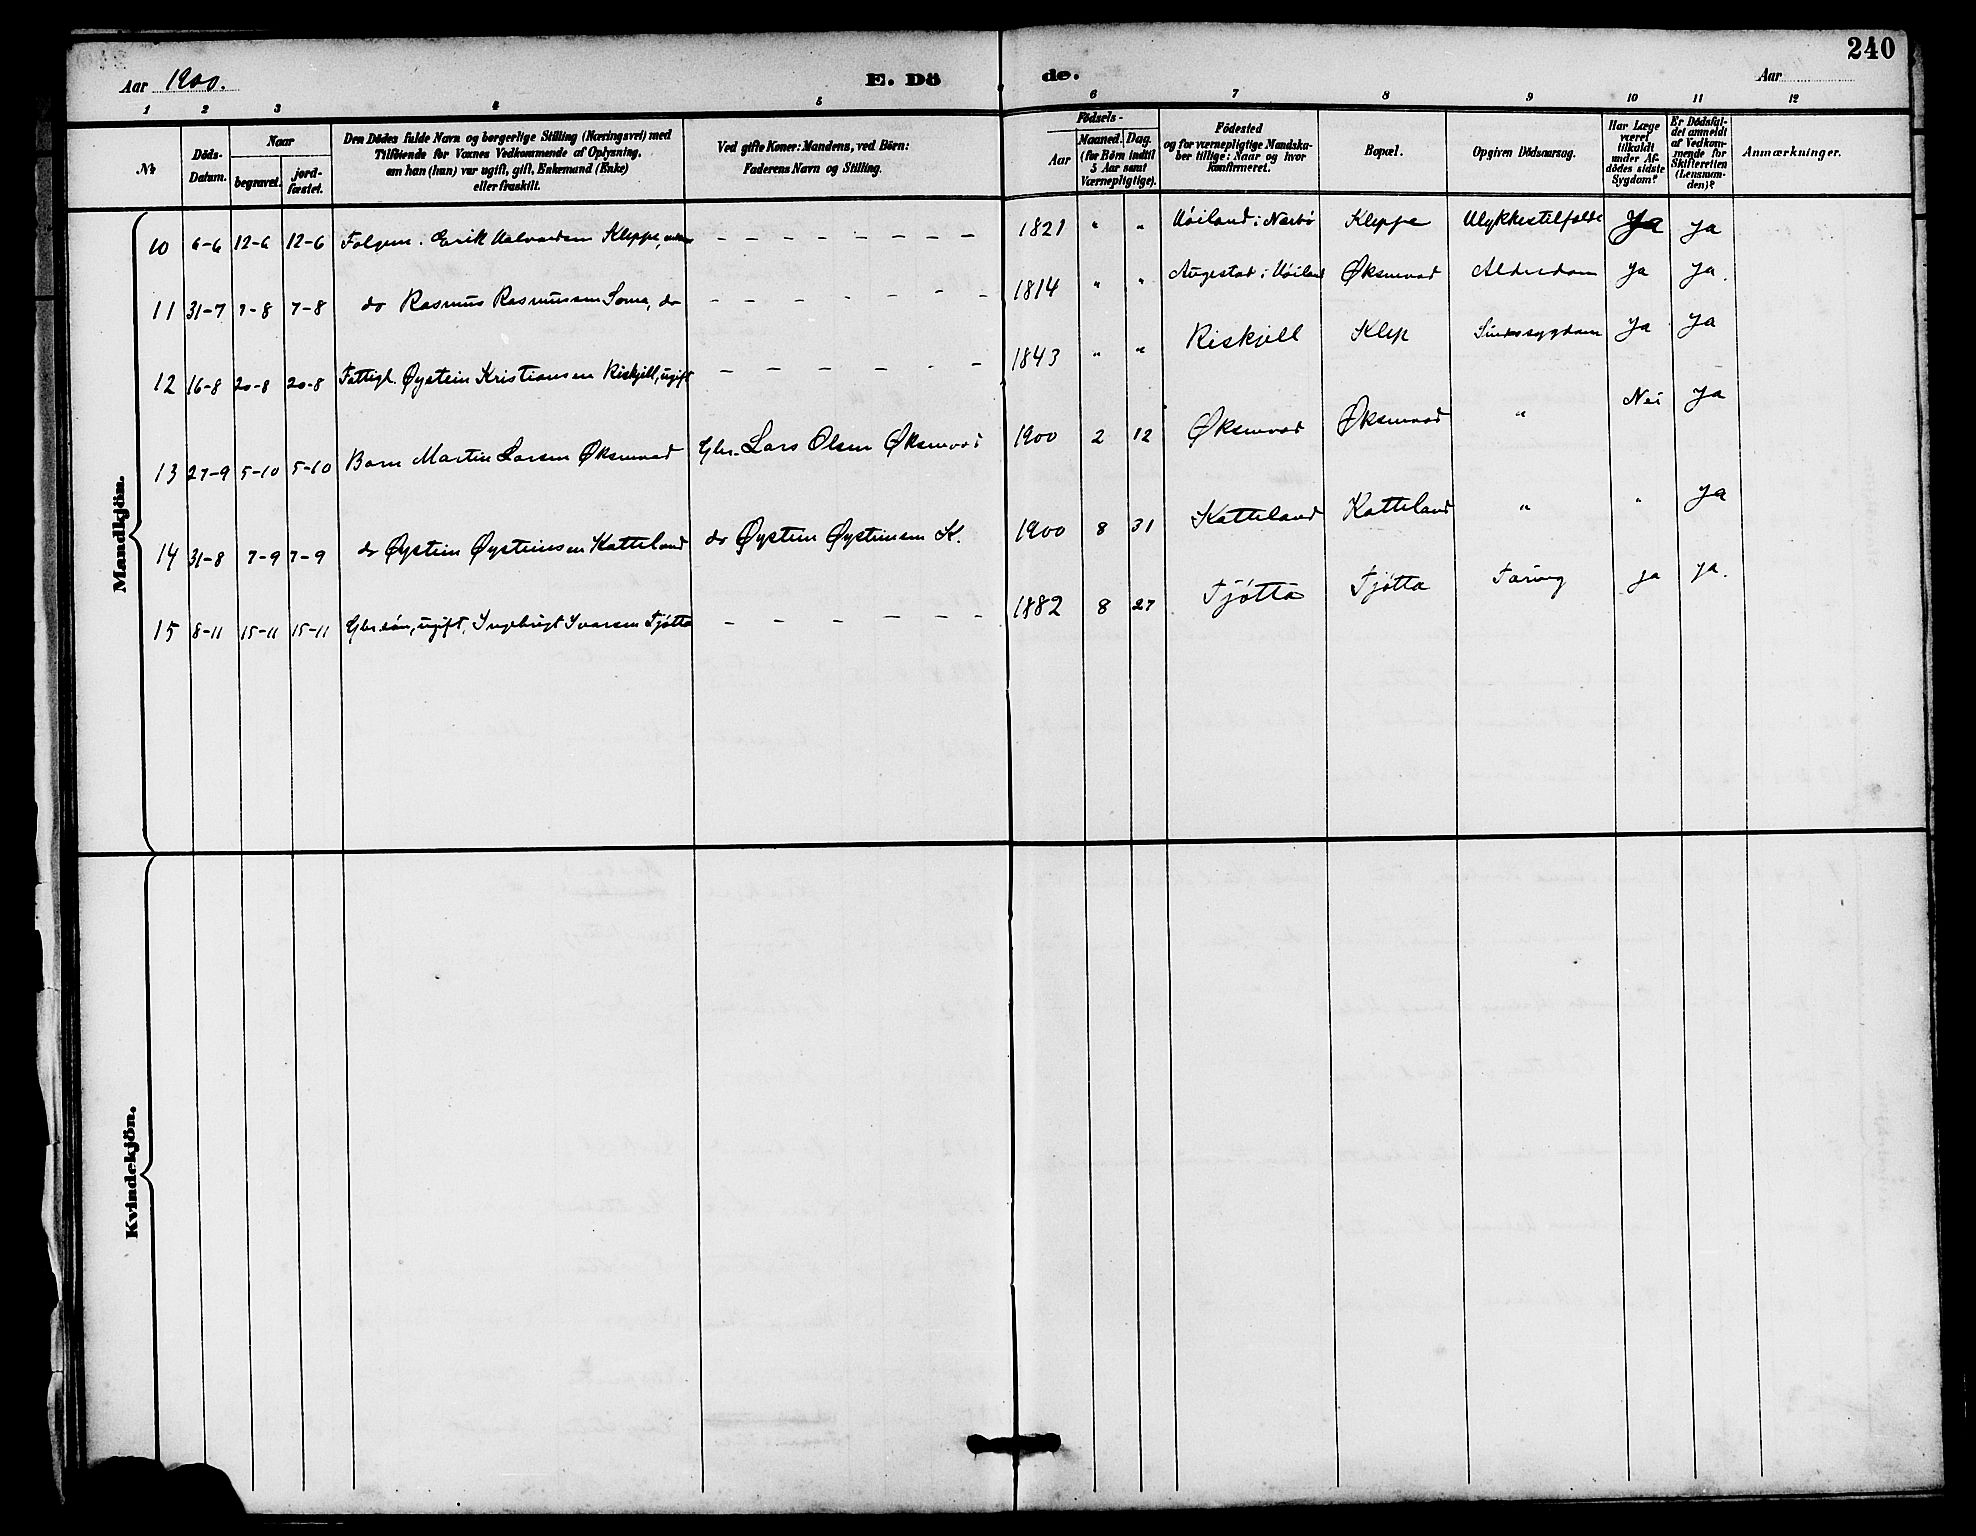 240
Aar 1900.
E. Dö
de.
Aar
1 2 3 4 5 6 7 8 9 10 11 12
№
Döds-
Datum.
Naar
begravet.
jord-
fæstet.
Den Dödes fulde Navn og borgerlige Stilling (Næringsvei) med
Tilföiende for Voxnes Vedkommende af Oplysning.
om han (hun) var ugift, gift, Enkemand (Enke)
eller fraskilt.
Ved gifte Koner: Mandens, ved Börn:
Faderens Navn og Stilling.
Födsels-
Aar
Maaned. Dag.
(for Börn indtil
5 Aar samt
Værnepligtige).
Födested
og for værnepligtige Mandska-
ber tillige: Naar og hvor
konfirmeret.
Bopæl.
Opgiven Dödsaarsag.
Har Læge
været
tilkaldt
under Af-
dödes sidste
Sygdom?
Er Dödsfal-
det anmeldt
af Vedkom-
mende for
Skifteretten
(Lensman-
den)?
Anmærkninger.
Mandkjön.
10 6-6 12-6 12-6 Folgem. Erik Halvardsen Kleppe, - - - - - - - - 1821 " " Høiland i Nærbø Kleppe Ulykkestilfælde Ja Ja
11 31-7 7-8 7-8 do Rasmus Rasmussen Soma, do - - - - - - - 1814 " " Augestad i Høiland Øksnevad Alderdom Ja Ja.
12 16-8 20-8 20-8 Fattigl. Øystein Kristiansen Riskjell, ugift - - - - - - - 1843 " " Riskjell Klep Sindssygdom Ja Ja
13 27-9 5-10 5-10 Barn Martin Larsen Øksnevad Gbr. Lars Olsen Øksnevad 1900 2 12 Øksnevad Øksnevad " Nei Ja
14 31-8 7-9 7-9 do Øystein Øysteinsen Katteland do Øystein Øysteinsen K. 1900 8 31 Katteland Katteland " " Ja
15 8-11 15-11 15-11 Gbr.søn, ugift, Ingebrigt Ivarsen Tjøtta - - - - - - - 1882 8 27 Tjøtta Tjøtta Tæring Ja Ja.
Kvindekjön.